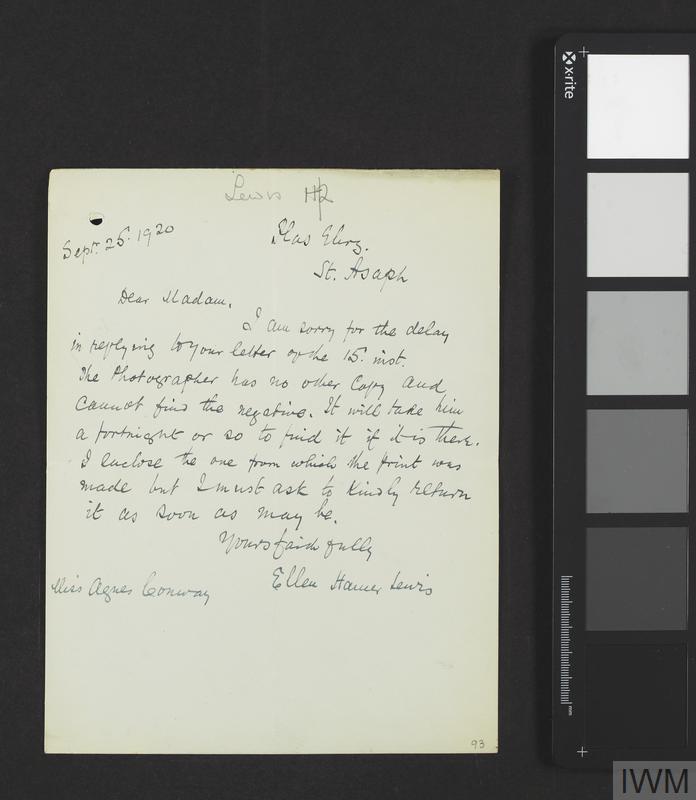 Lewis H/2
Sept. 25. 1920
Plas Elwy.
St. Asaph
Dear Madam.
I am sorry for the delay
in replying to your letter of the 15. inst.
The Photographer has no other Copy and
cannot find the negative. It will take him
a fortnight or so to find it if it is there.
I enclose the one from which the print was
made but I must ask to Kindly return
it as soon as may be.
Yours faithfully
Ellen Hamer Lewis
Miss Agnes Conway
93
x-rite
mm
IWM